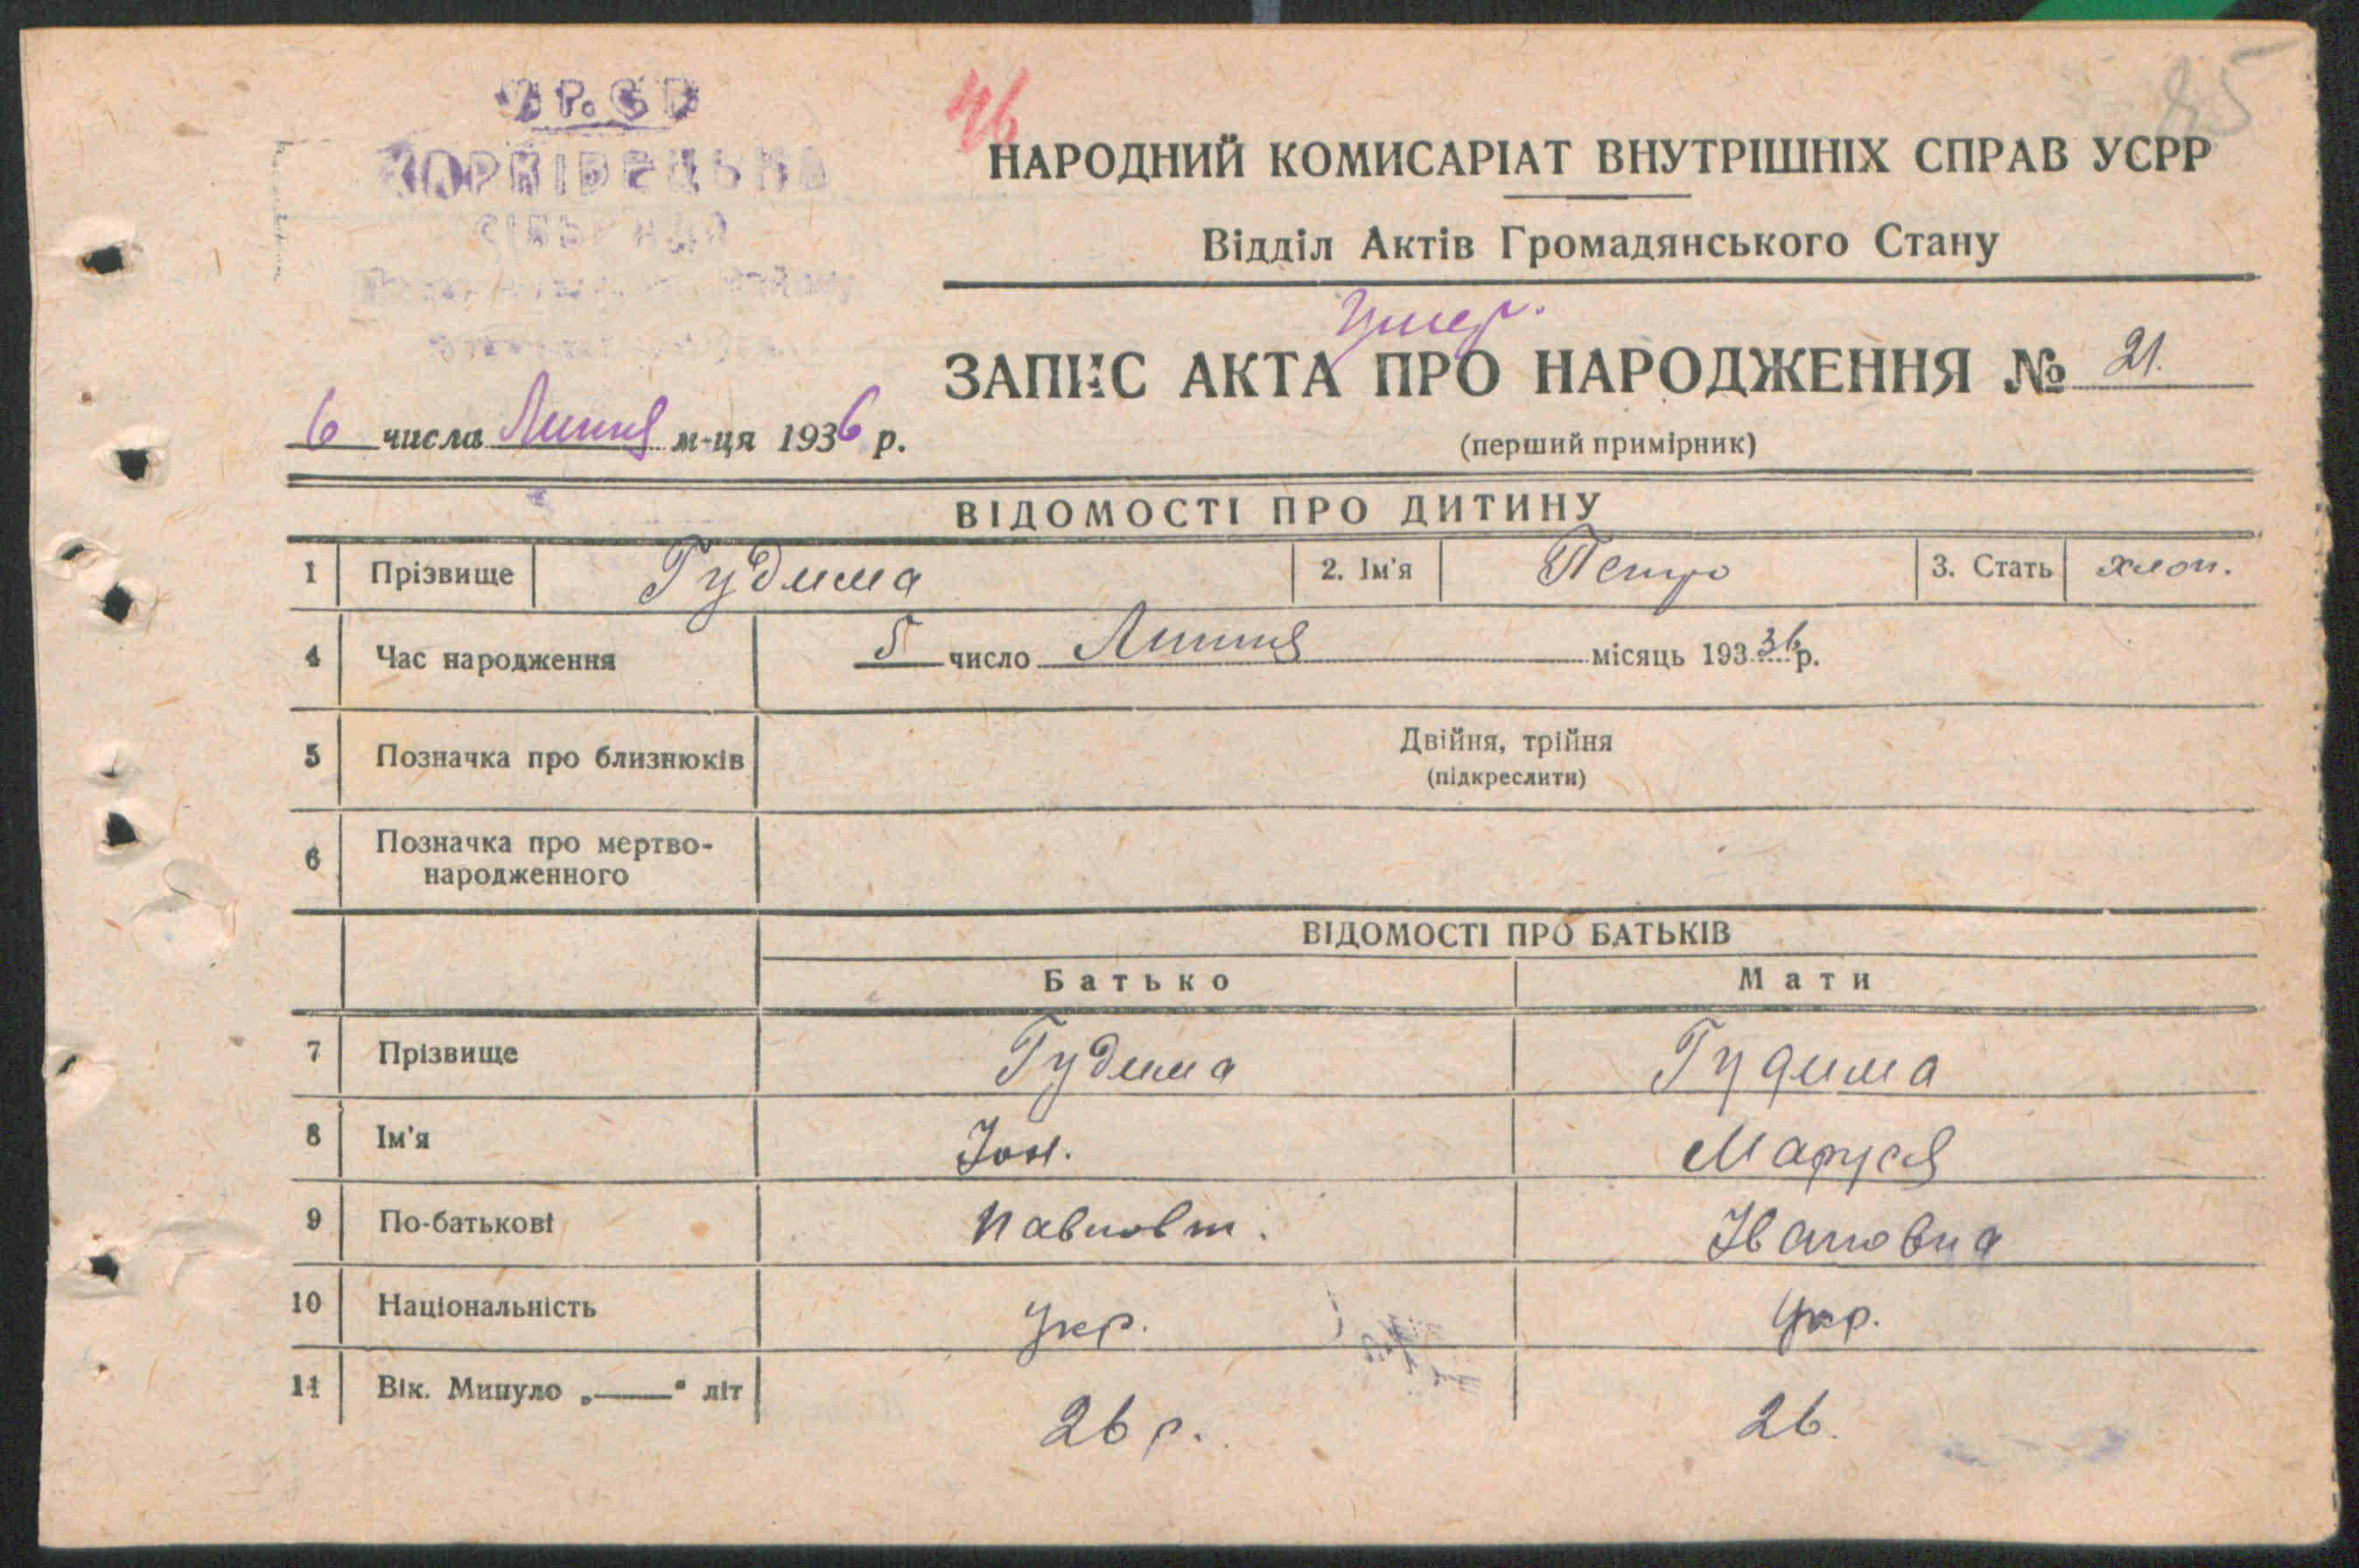 46
85
У.Р.С.Р
ХАРКІВЕЦЬКА
СІЛЬРАДА
НАРОДНИЙ КОМИСАРІАТ ВНУТРІШНІХ СПРАВ УСРР
Відділ Актів Громадянського Стану
Умер.
ЗАПИС АКТА ПРО НАРОДЖЕННЯ № 21.
6 числа Липня м-ця 1936 р.
(перший примірник)
ВІДОМОСТІ ПРО ДИТИНУ
1 Прізвище Гудима 2. Ім'я Петро 3. Стать хлоп.
4 Час народження 5 число Липня місяць 193 36 р.
5 Позначка про близнюків Двійня, трійня
(підкреслити)
6 Позначка про мертво-
народженного
ВІДОМОСТІ ПРО БАТЬКІВ
Батько Мати
7 Прізвище Гудима Гудима
8 Ім'я Іон. Маруся
9 По-батькові Павловт. Івановна
10 Національність Укр. Укр.
11 Вік. Минуло „—" літ 26 р. 26.